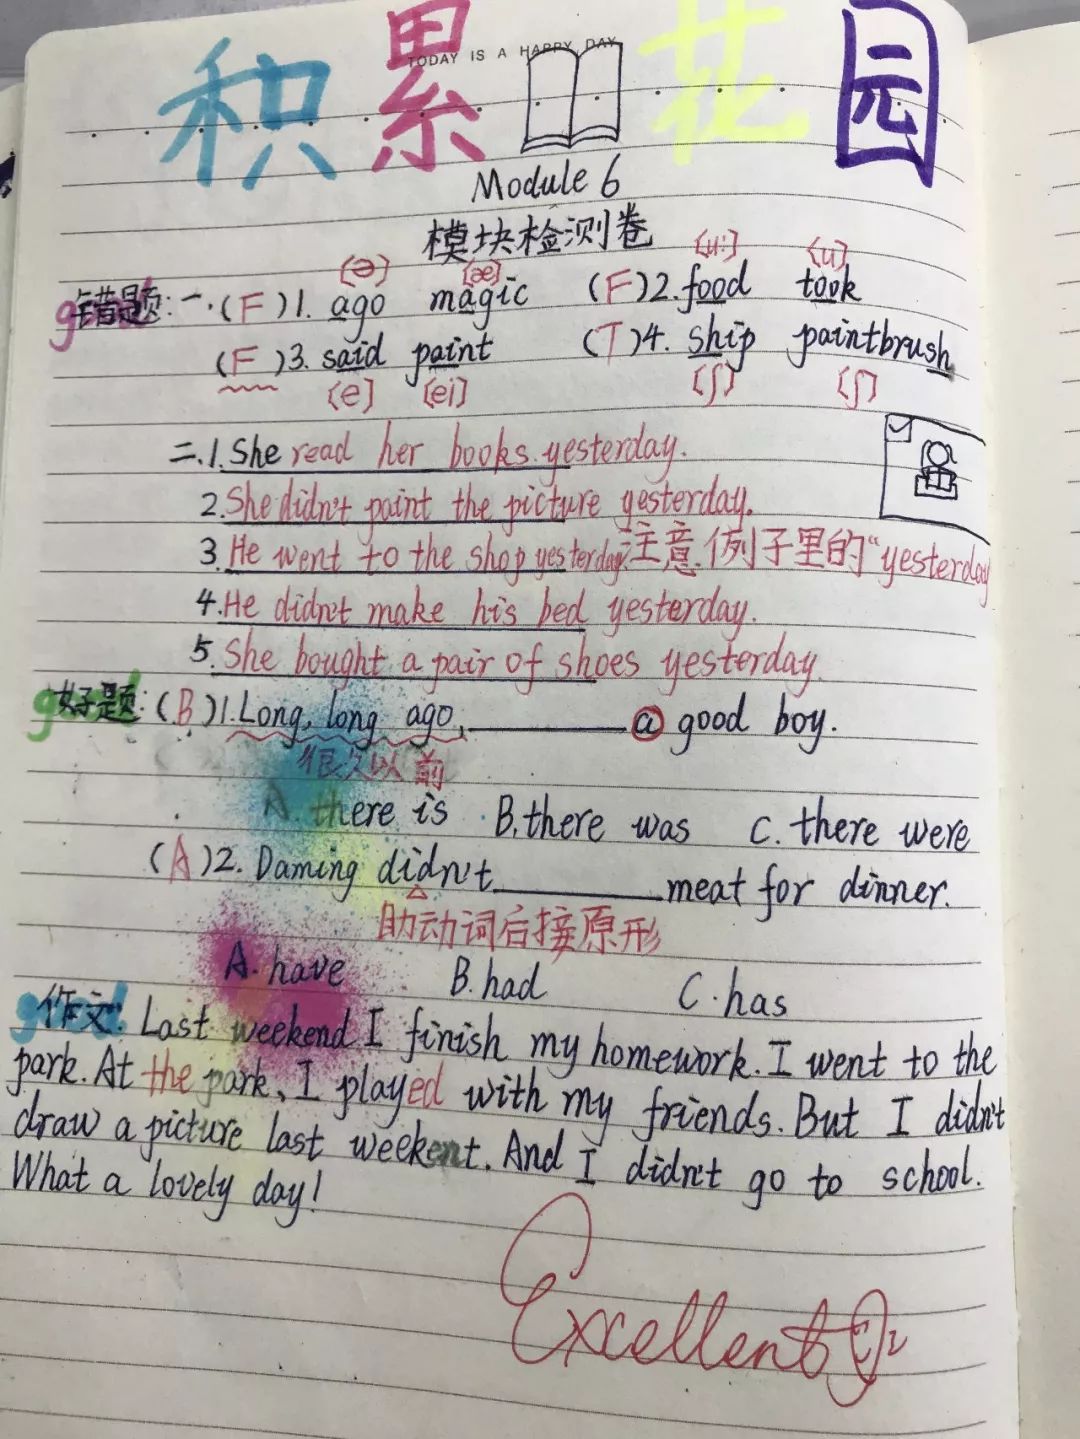 积累花园
TODAY IS A HAPPY DAY
Module 6
模块检测卷
[ə] [æ] [u:] [u]
错题: 一.(F)1. ago magic (F)2. food took
(F)3. said paint (T)4. ship paintbrush
[e] [ei] [ʃ] [ʃ]
二.1. She read her books yesterday.
2. She didn't paint the picture yesterday.
3. He went to the shop yesterday. 注意例子里的"yesterday
4. He didn't make his bed yesterday.
5. She bought a pair of shoes yesterday.
好题: (B)1. Long, long ago, ________ a good boy.
很久以前
A. there is B. there was C. there were
(A)2. Daming didn't ________ meat for dinner.
助动词后接原形
A. have B. had C. has
作文: Last weekend I finish my homework. I went to the
park. At the park, I played with my friends. But I didn't
draw a picture last weekent. And I didn't go to school.
What a lovely day!
Excellent